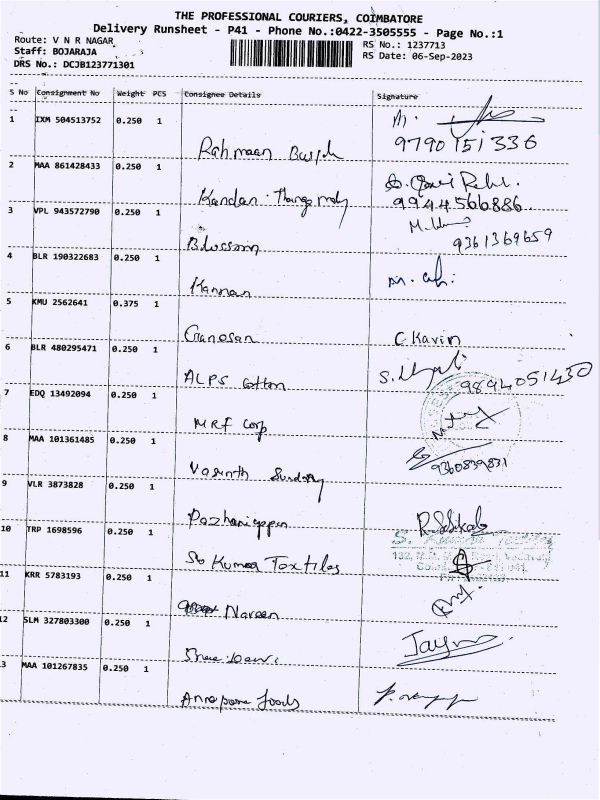 THE PROFESSIONAL COURIERS, COIMBATORE
Delivery Runsheet - P41 - Phone No.:0422-3505555 - Page No.:1
Route: V N R NAGAR
Staff: BOJARAJA
DRS No.: DCJB123771301
RS No.: 1237713
RS Date: 06-Sep-2023
S No Consignment No Weight PCS Consignee Details Signature
1 IXM 504513752 0.250 1 Rahmaan
9790151336
2 MAA 861428433 0.250 1 Kandan
9944566886
3 VPL 943572790 0.250 1 Blossom
9361369659
4 BLR 190322683 0.250 1 Kannan
5 KMU 2562641 0.375 1 Ganesan C Kavin
6 BLR 480295471 0.250 1 ALPS Cotton
9894051430
7 EDQ 13492094 0.250 1 MRF Corp
8 MAA 101361485 0.250 1 Vasinth
9360839831
9 VLR 3873828 0.250 1 Pazhaniappan
10 TRP 1698596 0.250 1 Kumaa Textiles
11 KRR 5783193 0.250 1 Naveen
12 SLM 327803300 0.250 1 Shree Devi
13 MAA 101267835 0.250 1 Annapoorna foods